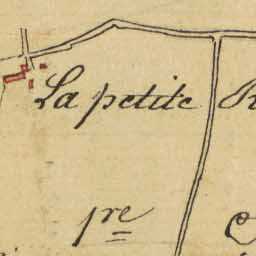 La petite
pre